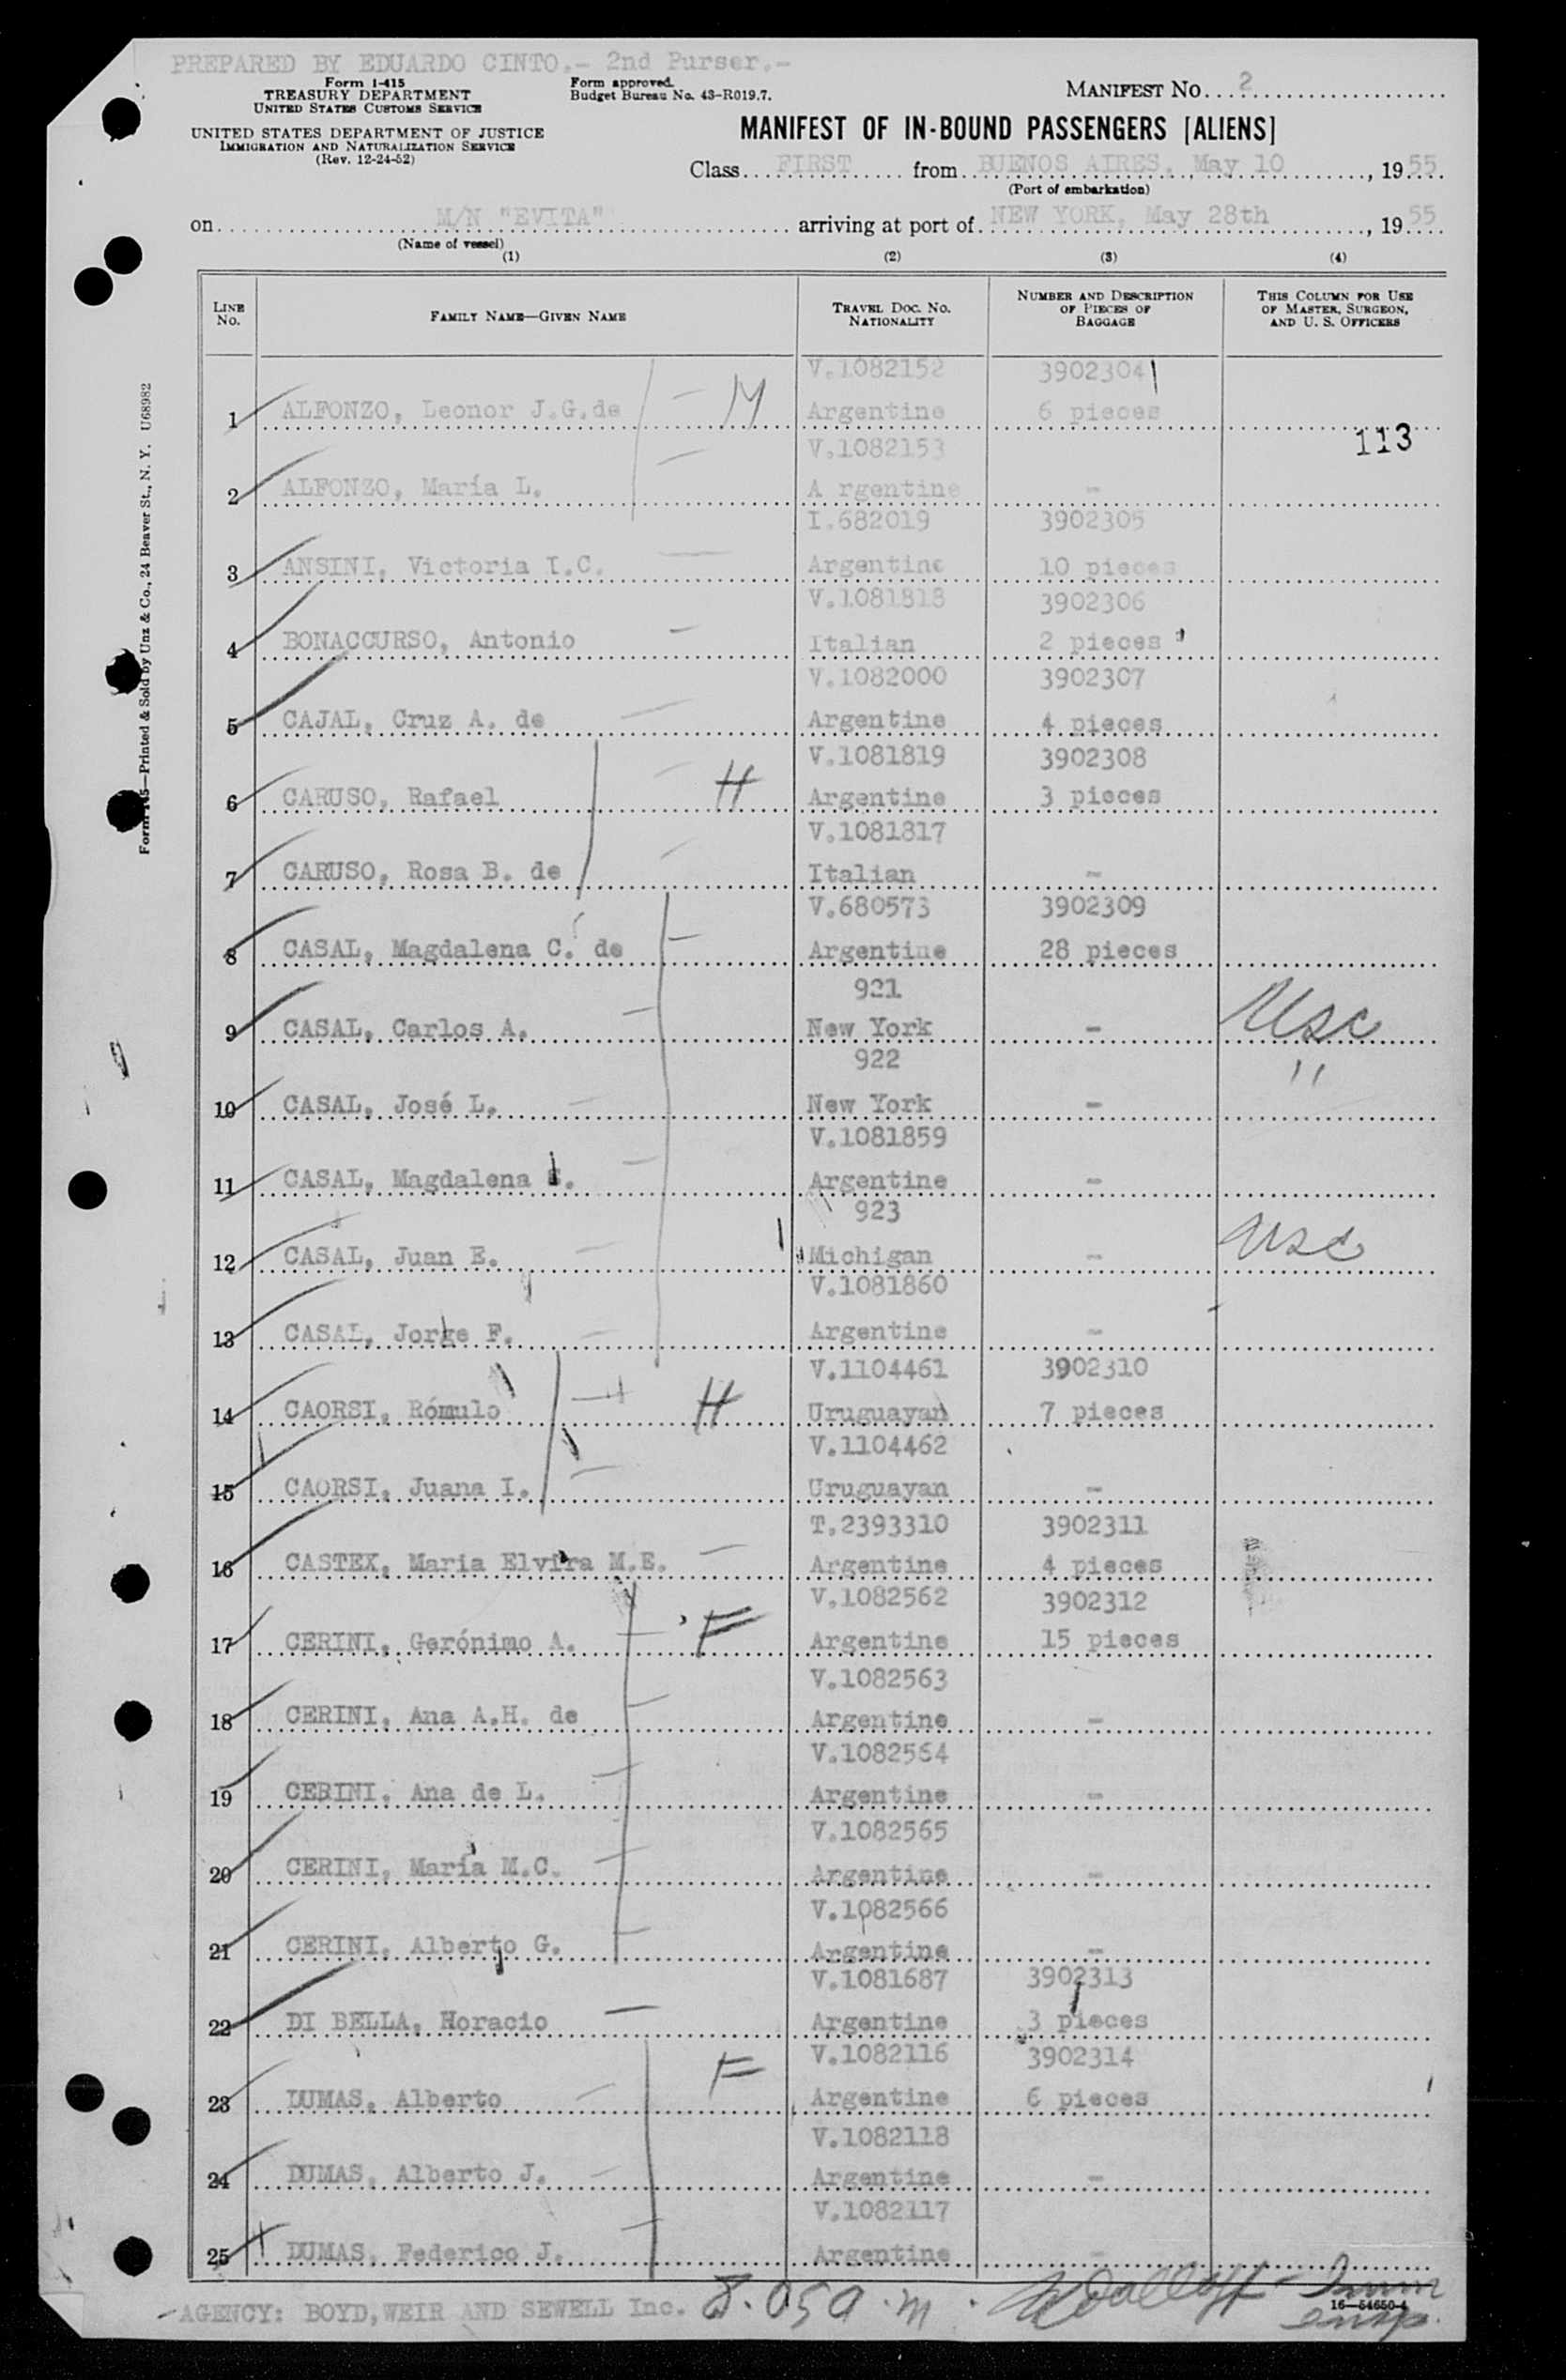 PREPARED BY EDUARDO CINTO.- 2nd Purser.-
Form I-415
TREASURY DEPARTMENT
UNITED STATES CUSTOMS SERVICE
Form approved.
Budget Bureau No. 43-R019.7.
MANIFEST NO. 2
UNITED STATES DEPARTMENT OF JUSTICE
IMMIGRATION AND NATURALIZATION SERVICE
(Rev. 12-24-52)
MANIFEST OF IN-BOUND PASSENGERS [ALIENS]
Class FIRST from BUENOS AIRES, May 10, 1955
(Port of embarkation)
on M/N "EVITA" arriving at port of NEW YORK, May 28th, 1955
(Name of vessel)
(1) (2) (3) (4)
LINE NO. FAMILY NAME—GIVEN NAME TRAVEL DOC. NO. NATIONALITY NUMBER AND DESCRIPTION OF PIECES OF BAGGAGE THIS COLUMN FOR USE OF MASTER, SURGEON, AND U. S. OFFICERS
V.1082152 3902304
1 ALFONZO, Leonor J.G.de M Argentine 6 pieces
113
V.1082153
2 ALFONZO, María L. A rgentine -
I.682019 3902305
3 ANSINI, Victoria I.C. Argentine 10 pieces
V.1081818 3902306
4 BONACCURSO, Antonio Italian 2 pieces
V.1082000 3902307
5 CAJAL, Cruz A. de Argentine 4 pieces
V.1081819 3902308
6 CARUSO, Rafael H Argentine 3 pieces
V.1081817
7 CARUSO, Rosa B. de Italian -
V.680573 3902309
8 CASAL, Magdalena C. de Argentine 28 pieces
921
9 CASAL, Carlos A. New York - USC
922 "
10 CASAL, José L. New York -
V.1081859
11 CASAL, Magdalena Argentine -
923
12 CASAL, Juan E. Michigan - USC
V.1081860
13 CASAL, Jorge F. Argentine -
V.1104461 3902310
14 CAORSI, Rómulo H Uruguayan 7 pieces
V.1104462
15 CAORSI, Juana I. Uruguayan -
T.2393310 3902311
16 CASTEX, Maria Elvira M.E. Argentine 4 pieces
V.1082562 3902312
17 CERINI, Gerónimo A. F Argentine 15 pieces
V.1082563
18 CERINI, Ana A.H. de Argentine -
V.1082564
19 CERINI, Ana de L. Argentine -
V.1082565
20 CERINI, María M.C. Argentine -
V.1082566
21 CERINI, Alberto G. Argentine -
V.1081687 3902313
22 DI BELLA, Horacio Argentine 3 pieces
V.1082116 3902314
23 DUMAS, Alberto F Argentine 6 pieces
V.1082118
24 DUMAS, Alberto J. Argentine -
V.1082117
25 DUMAS, Federico J. Argentine -
AGENCY: BOYD,WEIR AND SEWELL Inc.
16—54650-4
Printed & Sold by Unz & Co., 24 Beaver St., N. Y. U68982